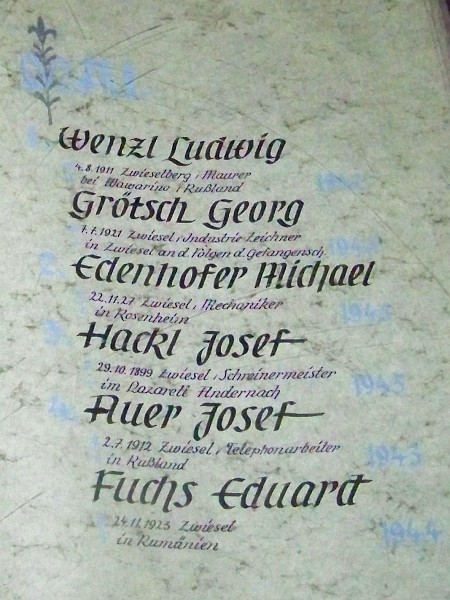 Wenzl Ludwig
4.8.1911 Zwieselberg, Maurer
bei Wawarino, Rußland
Grötsch Georg
1.1.1921 Zwiesel, Industrie-Zeichner
in Zwiesel an d. Folgen d. Gefangensch.
Edenhofer Michael
22.11.27 Zwiesel, Mechaniker
in Rosenheim
1945
Hackl Josef
29.10.1899 Zwiesel, Schreinermeister
im Lazarett Andernach
1945
Auer Josef
2.7.1912 Zwiesel, Telephonarbeiter
in Rußland
1943
Fuchs Eduard
24.11.1923 Zwiesel
in Rumänien
1944